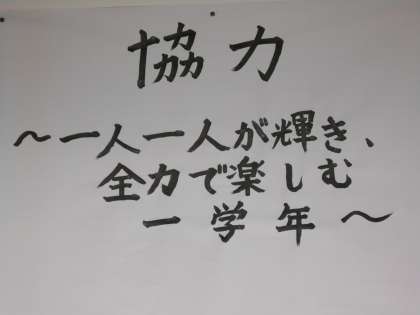 協力
～一人一人が輝き、
全力で楽しむ
一学年～